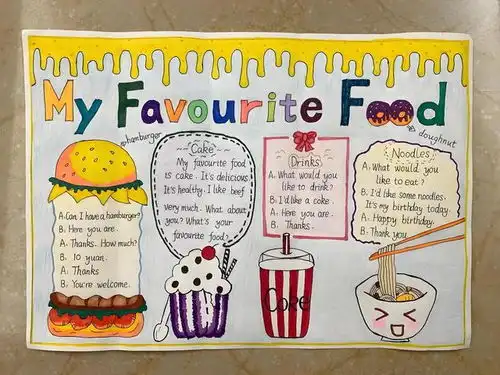 My Favourite Food
hamburger
doughnut
A: Can I have a hamburger?
B: Here you are.
A: Thanks. How much?
B: 10 yuan.
A: Thanks
B: You're welcome.
Cake
My favourite food
is cake. It's delicious
It's healthy. I like beef
very much. What about
you? What's your
favourite food?
Drinks
A: What would you
like to drink?
B: I'd like a coke.
A: Here you are.
B: Thanks.
Coke
Noodles
A: What would you
like to eat?
B: I'd like some noodles.
It's my birthday today.
A: Happy birthday.
B: Thank you